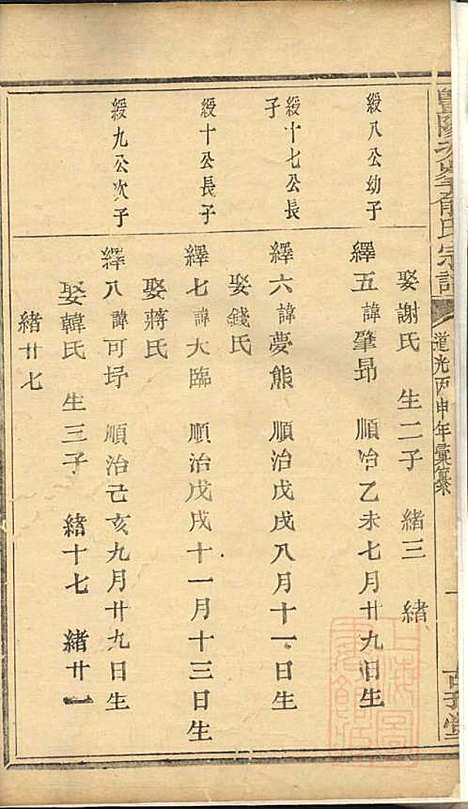 俞氏宗譜 道光丙申年彙纂
娶謝氏 生二子 緒三 緒
綬八公幼子
繹五 諱肇昂 順治乙未七月廿九日生
綬十七公長子
繹六 諱夢熊 順治戊戌八月十一日生
娶錢氏
綬十公長子
繹七 諱大臨 順治戊戌十一月十三日生
娶蔣氏
綬九公次子
繹八 諱可㘾 順治己亥九月廿九日生
娶韓氏 生三子 緒十七 緒廿一
緒廿七